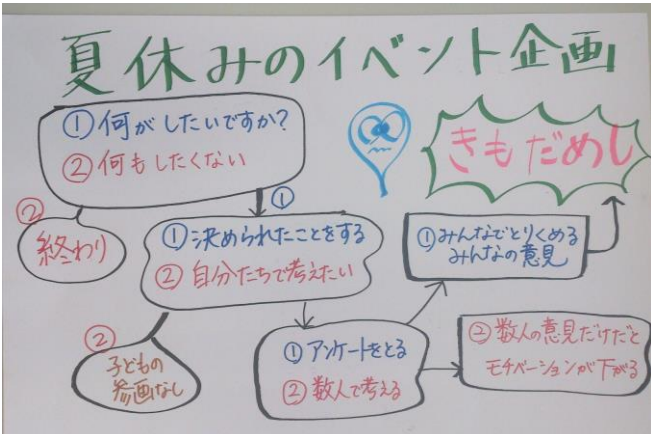 夏休みのイベント企画
①何がしたいですか?
②何もしたくない
きもだめし
①
②
終わり
①決められたことをする
②自分たちで考えたい
①みんなでとりくめる
みんなの意見
②
子どもの
参画なし
①アンケートをとる
②数人で考える
②数人の意見だけだと
モチベーションが下がる